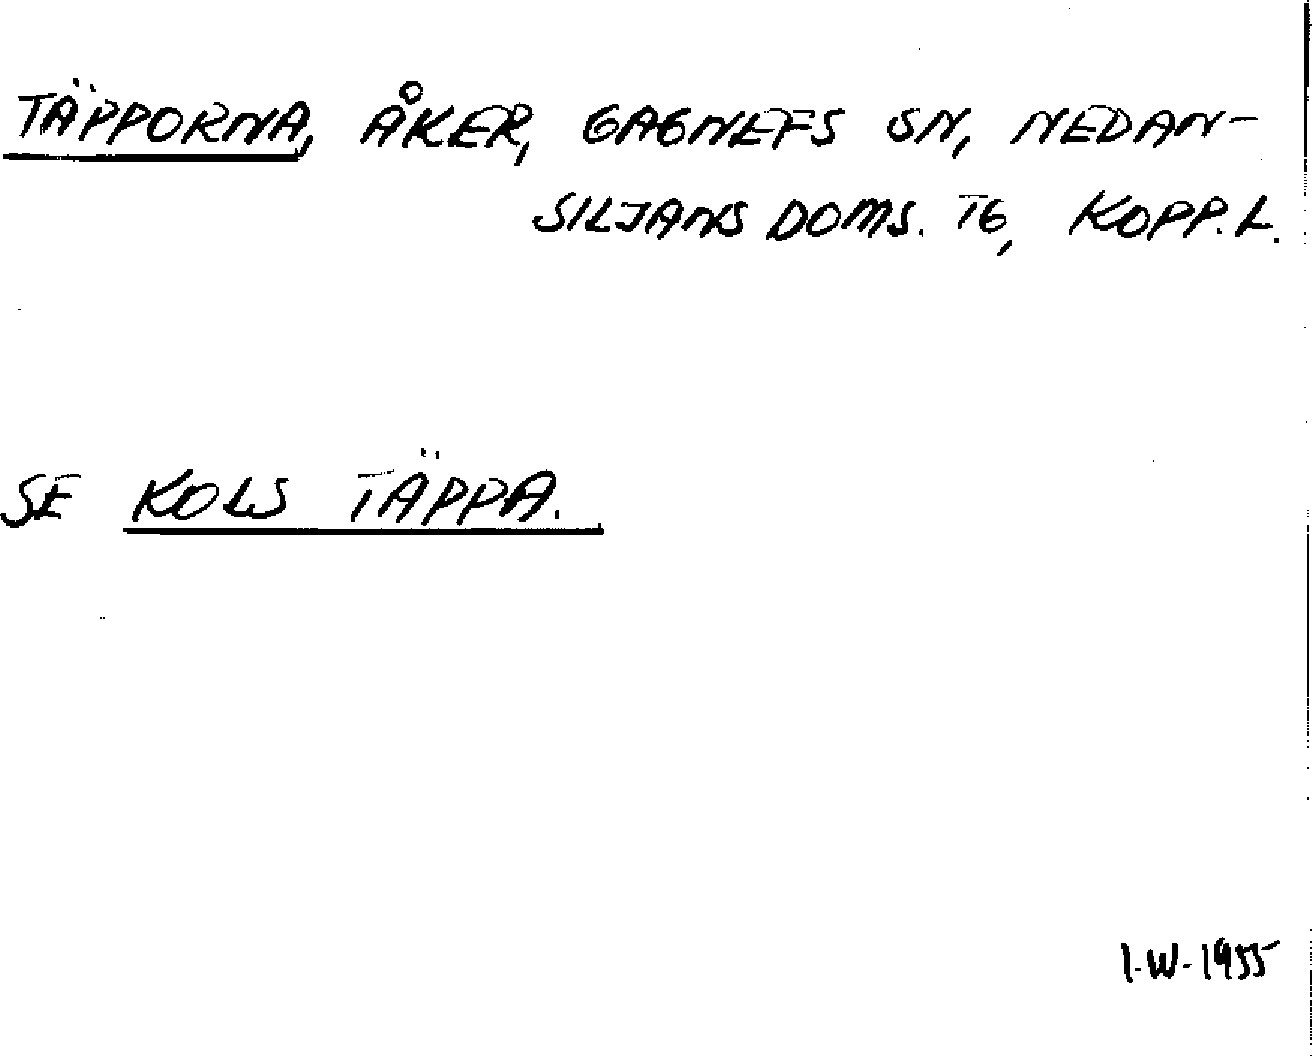 TÄPPORNA, ÅKER, GAGNEFS SN, NEDAN-
SILJANS DOMS. TG, KOPP. L.
SE KOLS TÄPPA.
I-W-1955